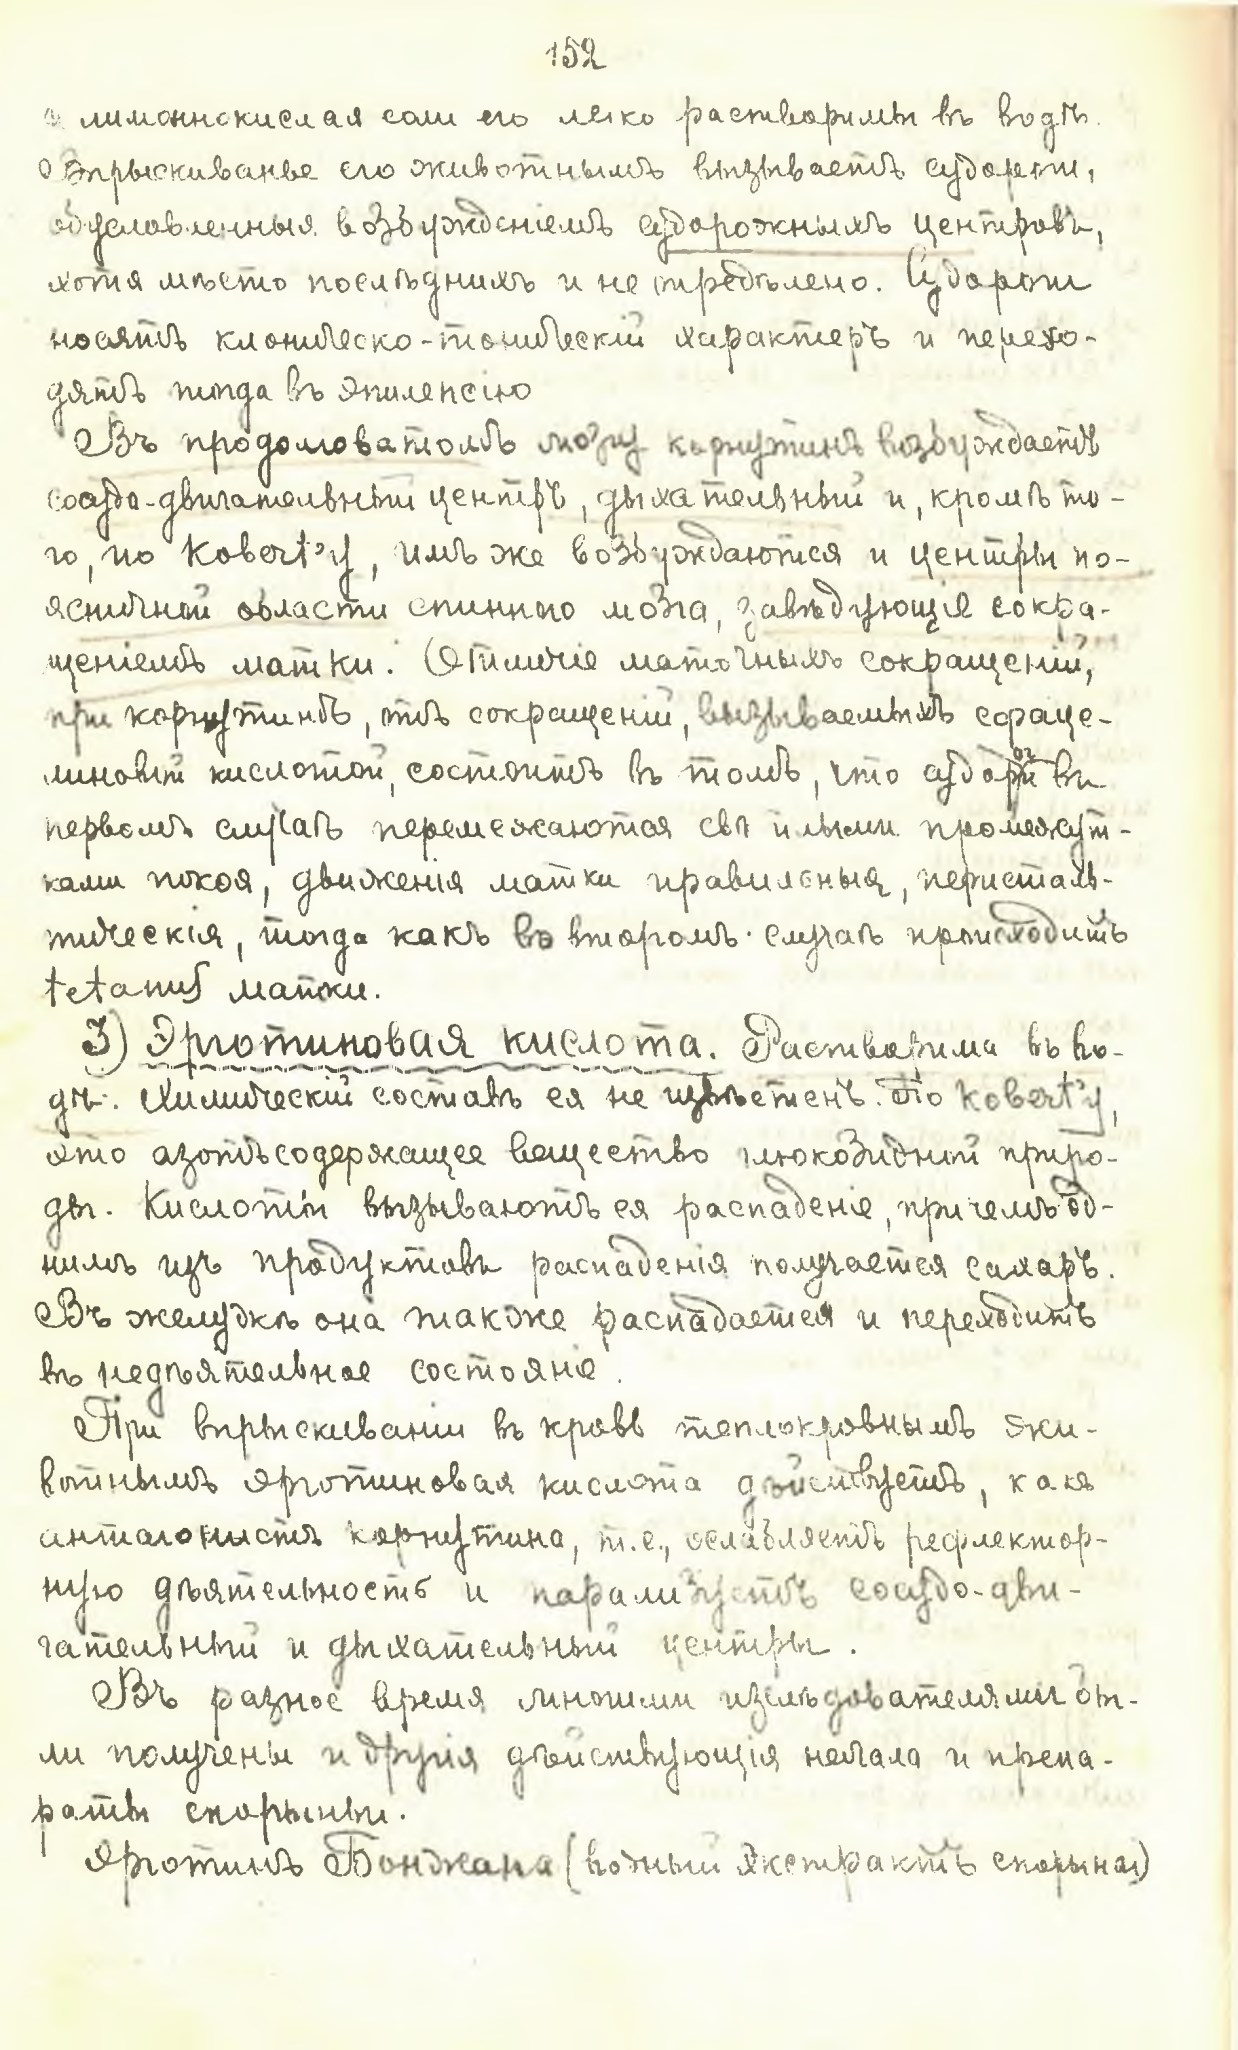 152
и лимоннокислая соли его легко растворимы въ водѣ.
Впрыскиванье его животнымъ вызываетъ судороги,
обусловленныя возбужденіемъ судорожныхъ центровъ,
хотя мѣсто послѣднихъ и не опредѣлено. Судороги
носятъ клоническо-тоническій характеръ и перехо-
дятъ тогда въ эпилепсію
Въ продолговатомъ мозгу корнутинъ возбуждаетъ
сосудо-двигательный центръ, дыхательный и, кромѣ то-
го, по Kobert'у, имъ же возбуждаются и центры по-
ясничной области спинного мозга, завѣдующіе сокра-
щеніемъ матки. Отличіе маточныхъ сокращеній,
при корнутинѣ, отъ сокращеній, вызываемыхъ сфаце-
линовой кислотой, состоитъ въ томъ, что судороги въ
первомъ случаѣ перемежаются свѣтлыми промежут-
ками покоя, движенія матки правильныя, персталь-
тическія, тогда какъ во второмъ случаѣ происходитъ
tetanus матки.
3) Эрготиновая кислота. Растворима въ во-
дѣ. Химическій составъ ея не извѣстенъ. По Kobert'у,
это азотъсодержащее вещество глюкозидной приро-
ды. Кислоты вызываютъ ея распаденіе, причемъ од-
нимъ изъ продуктовъ распаденія получается сахаръ.
Въ желудкѣ она также распадается и переходитъ
въ недѣятельное состояніе.
При впрыскиваніи въ кровь теплокровнымъ жи-
вотнымъ эрготиновая кислота дѣйствуетъ, какъ
антагонистъ корнутина, т.е., ослабляетъ рефлектор-
ную дѣятельность и парализуетъ сосудо-дви-
гательный и дыхательный центры.
Въ разное время многими изслѣдователями бы-
ли получены и другія дѣйствующія начала и препа-
раты спорыньи.
Эрготинъ Бонжана (водный экстрактъ спорыньи)